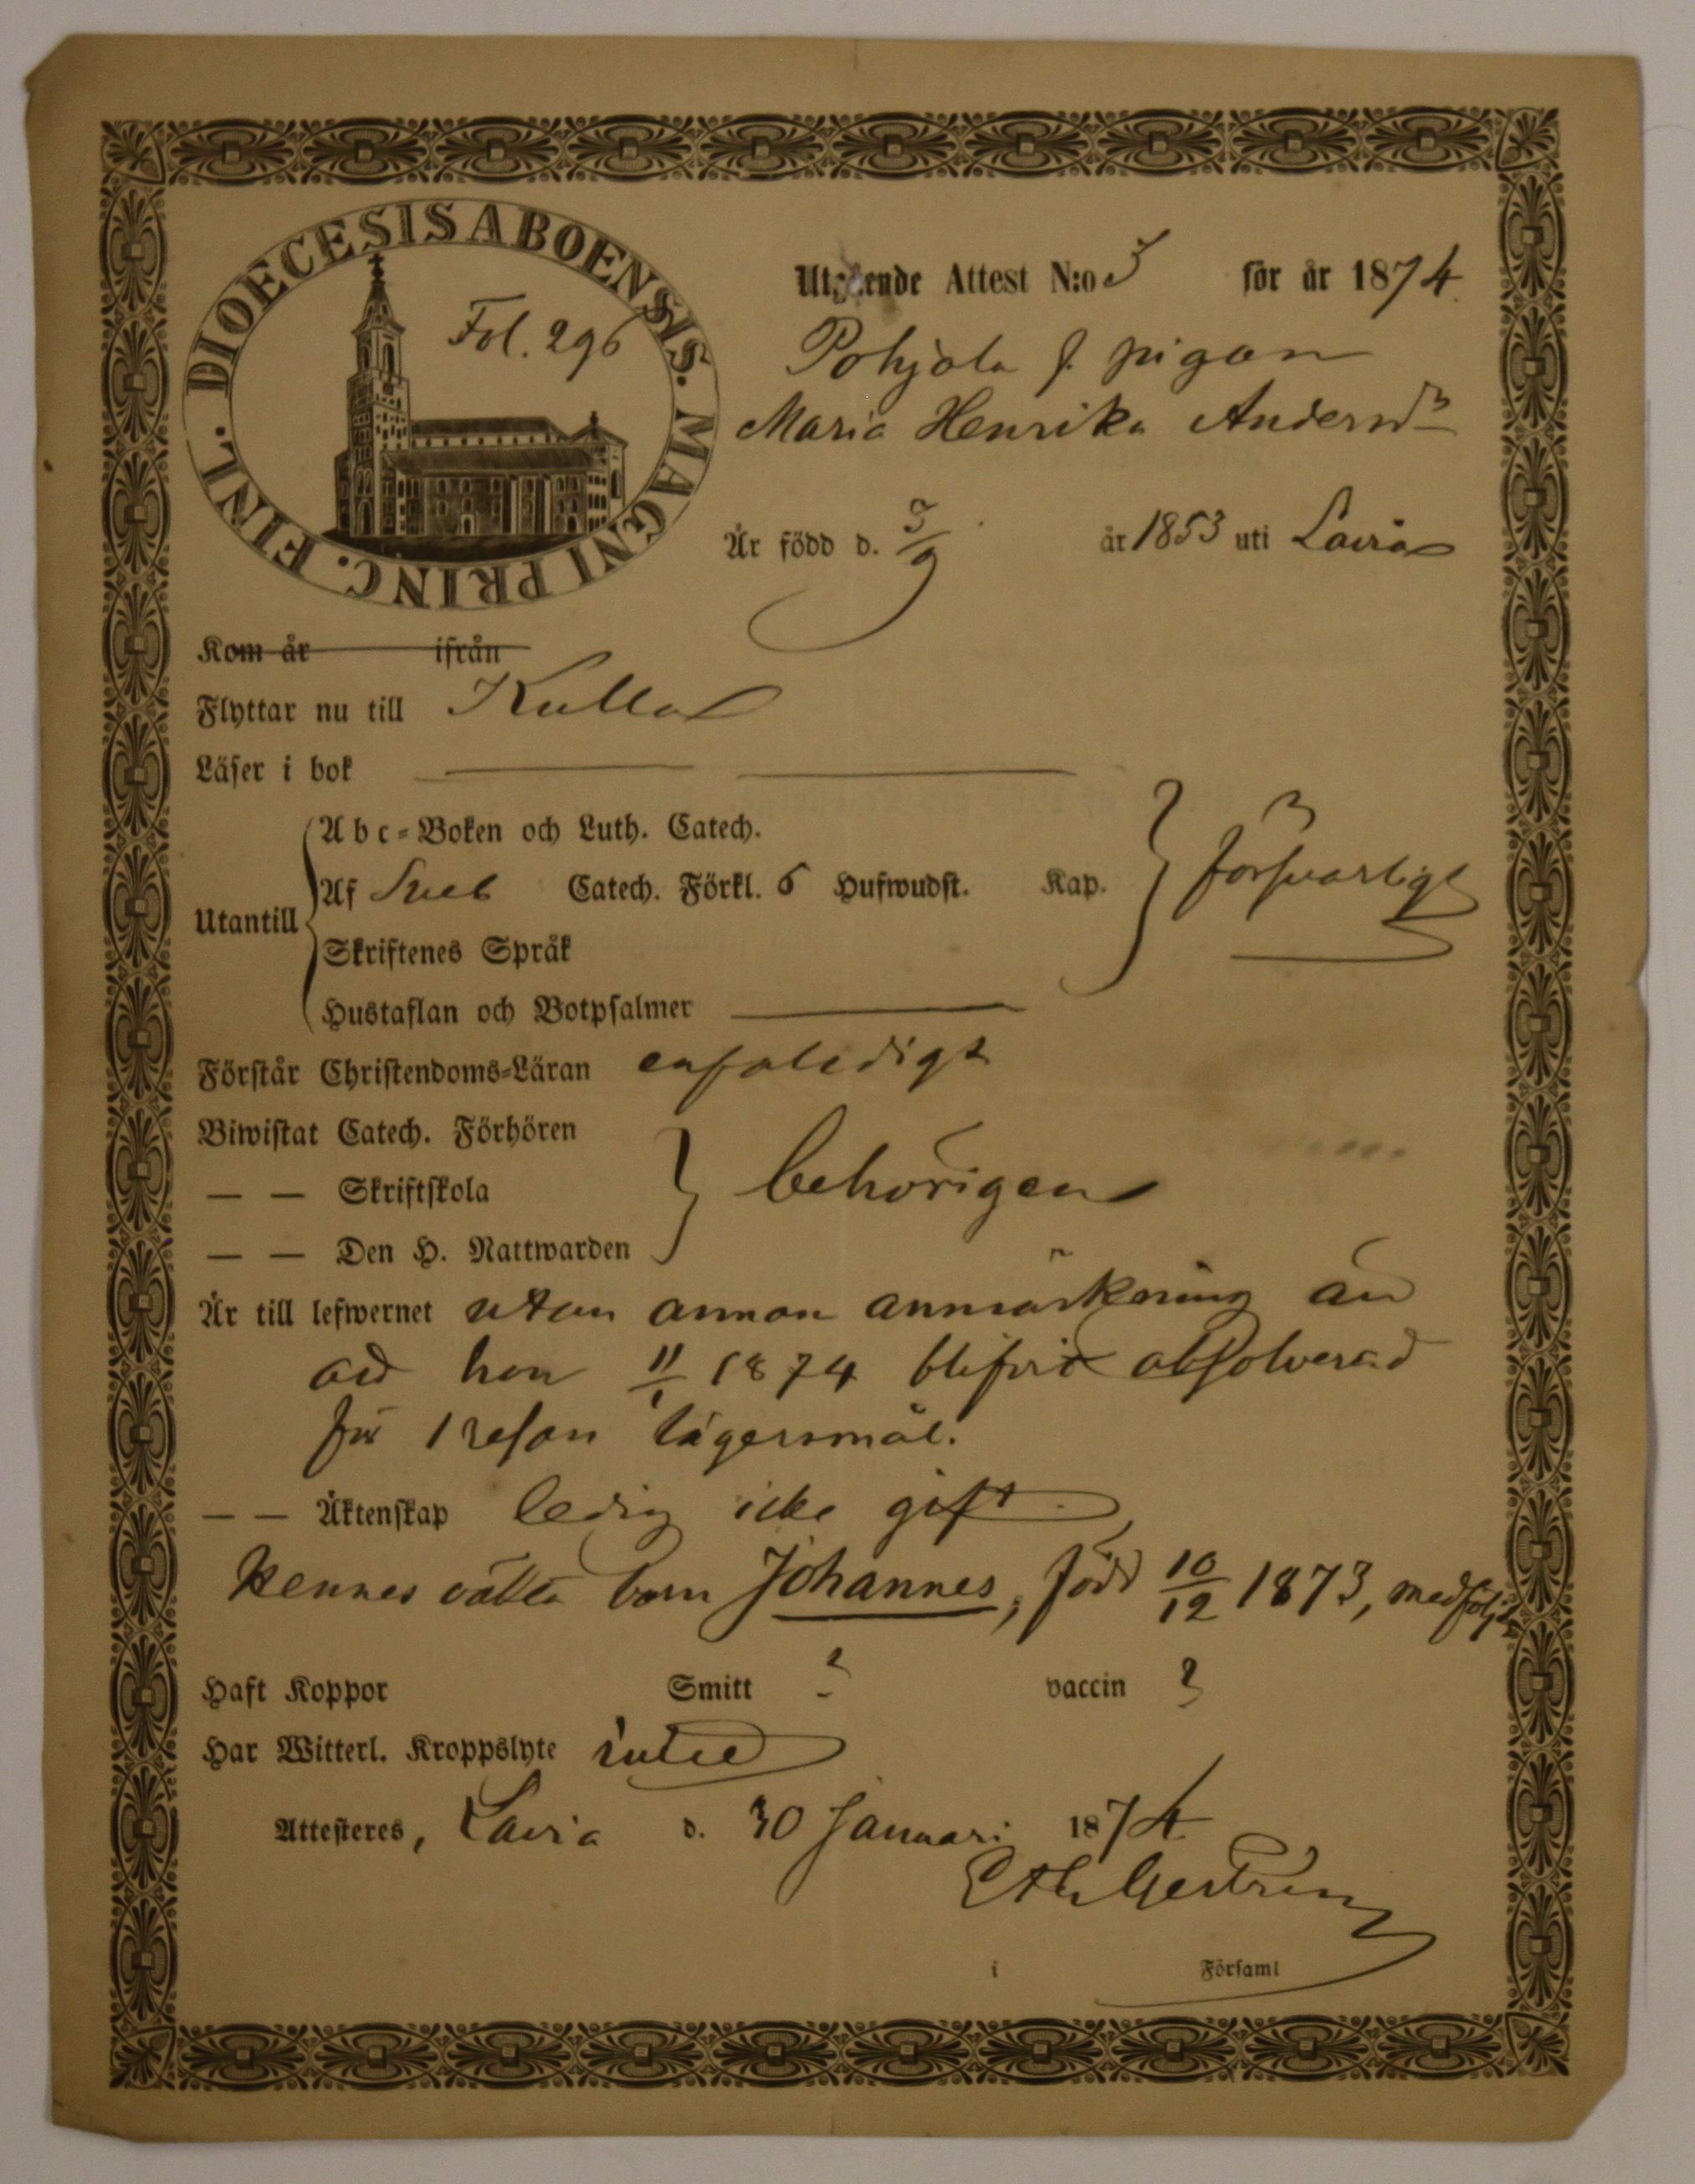 DIOECESIS ABOENSIS. MAGNI PRINC. FINL.
Fol. 296
Utgående Attest N:o 5 för år 1874.
Pohjola f. pigan
Maria Henrika Andersdr
Är född d. 5/9 år 1853 uti Lavia
Kom år ifrån
Flyttar nu till Kulla
Läser i bok
Utantill
Abc-Boken och Luth. Catech.
Af Sveb Catech. Förkl. 6 Hufwudst. Kap.
försvarligt
Skriftenes Språk
Hustaflan och Botpsalmer
Förstår Christendoms-Läran enfaldigt
Biwistat Catech. Förhören
— — Skriftskola
behörigen
— — Den H. Nattwarden
Är till lefwernet utan annan anmärkning än
att hon 11/1 1874 blifvit absolverad
för 1 resan lägersmål.
— — Äktenskap ledig icke gift.
Hennes oäkta barn Johannes, född 10/12 1873, medföljer
Haft Koppor Smitt ? vaccin ?
Har Witterl. Kroppslyte intet
Attesteres, Lavia d. 30 Januari 1874
i Församl